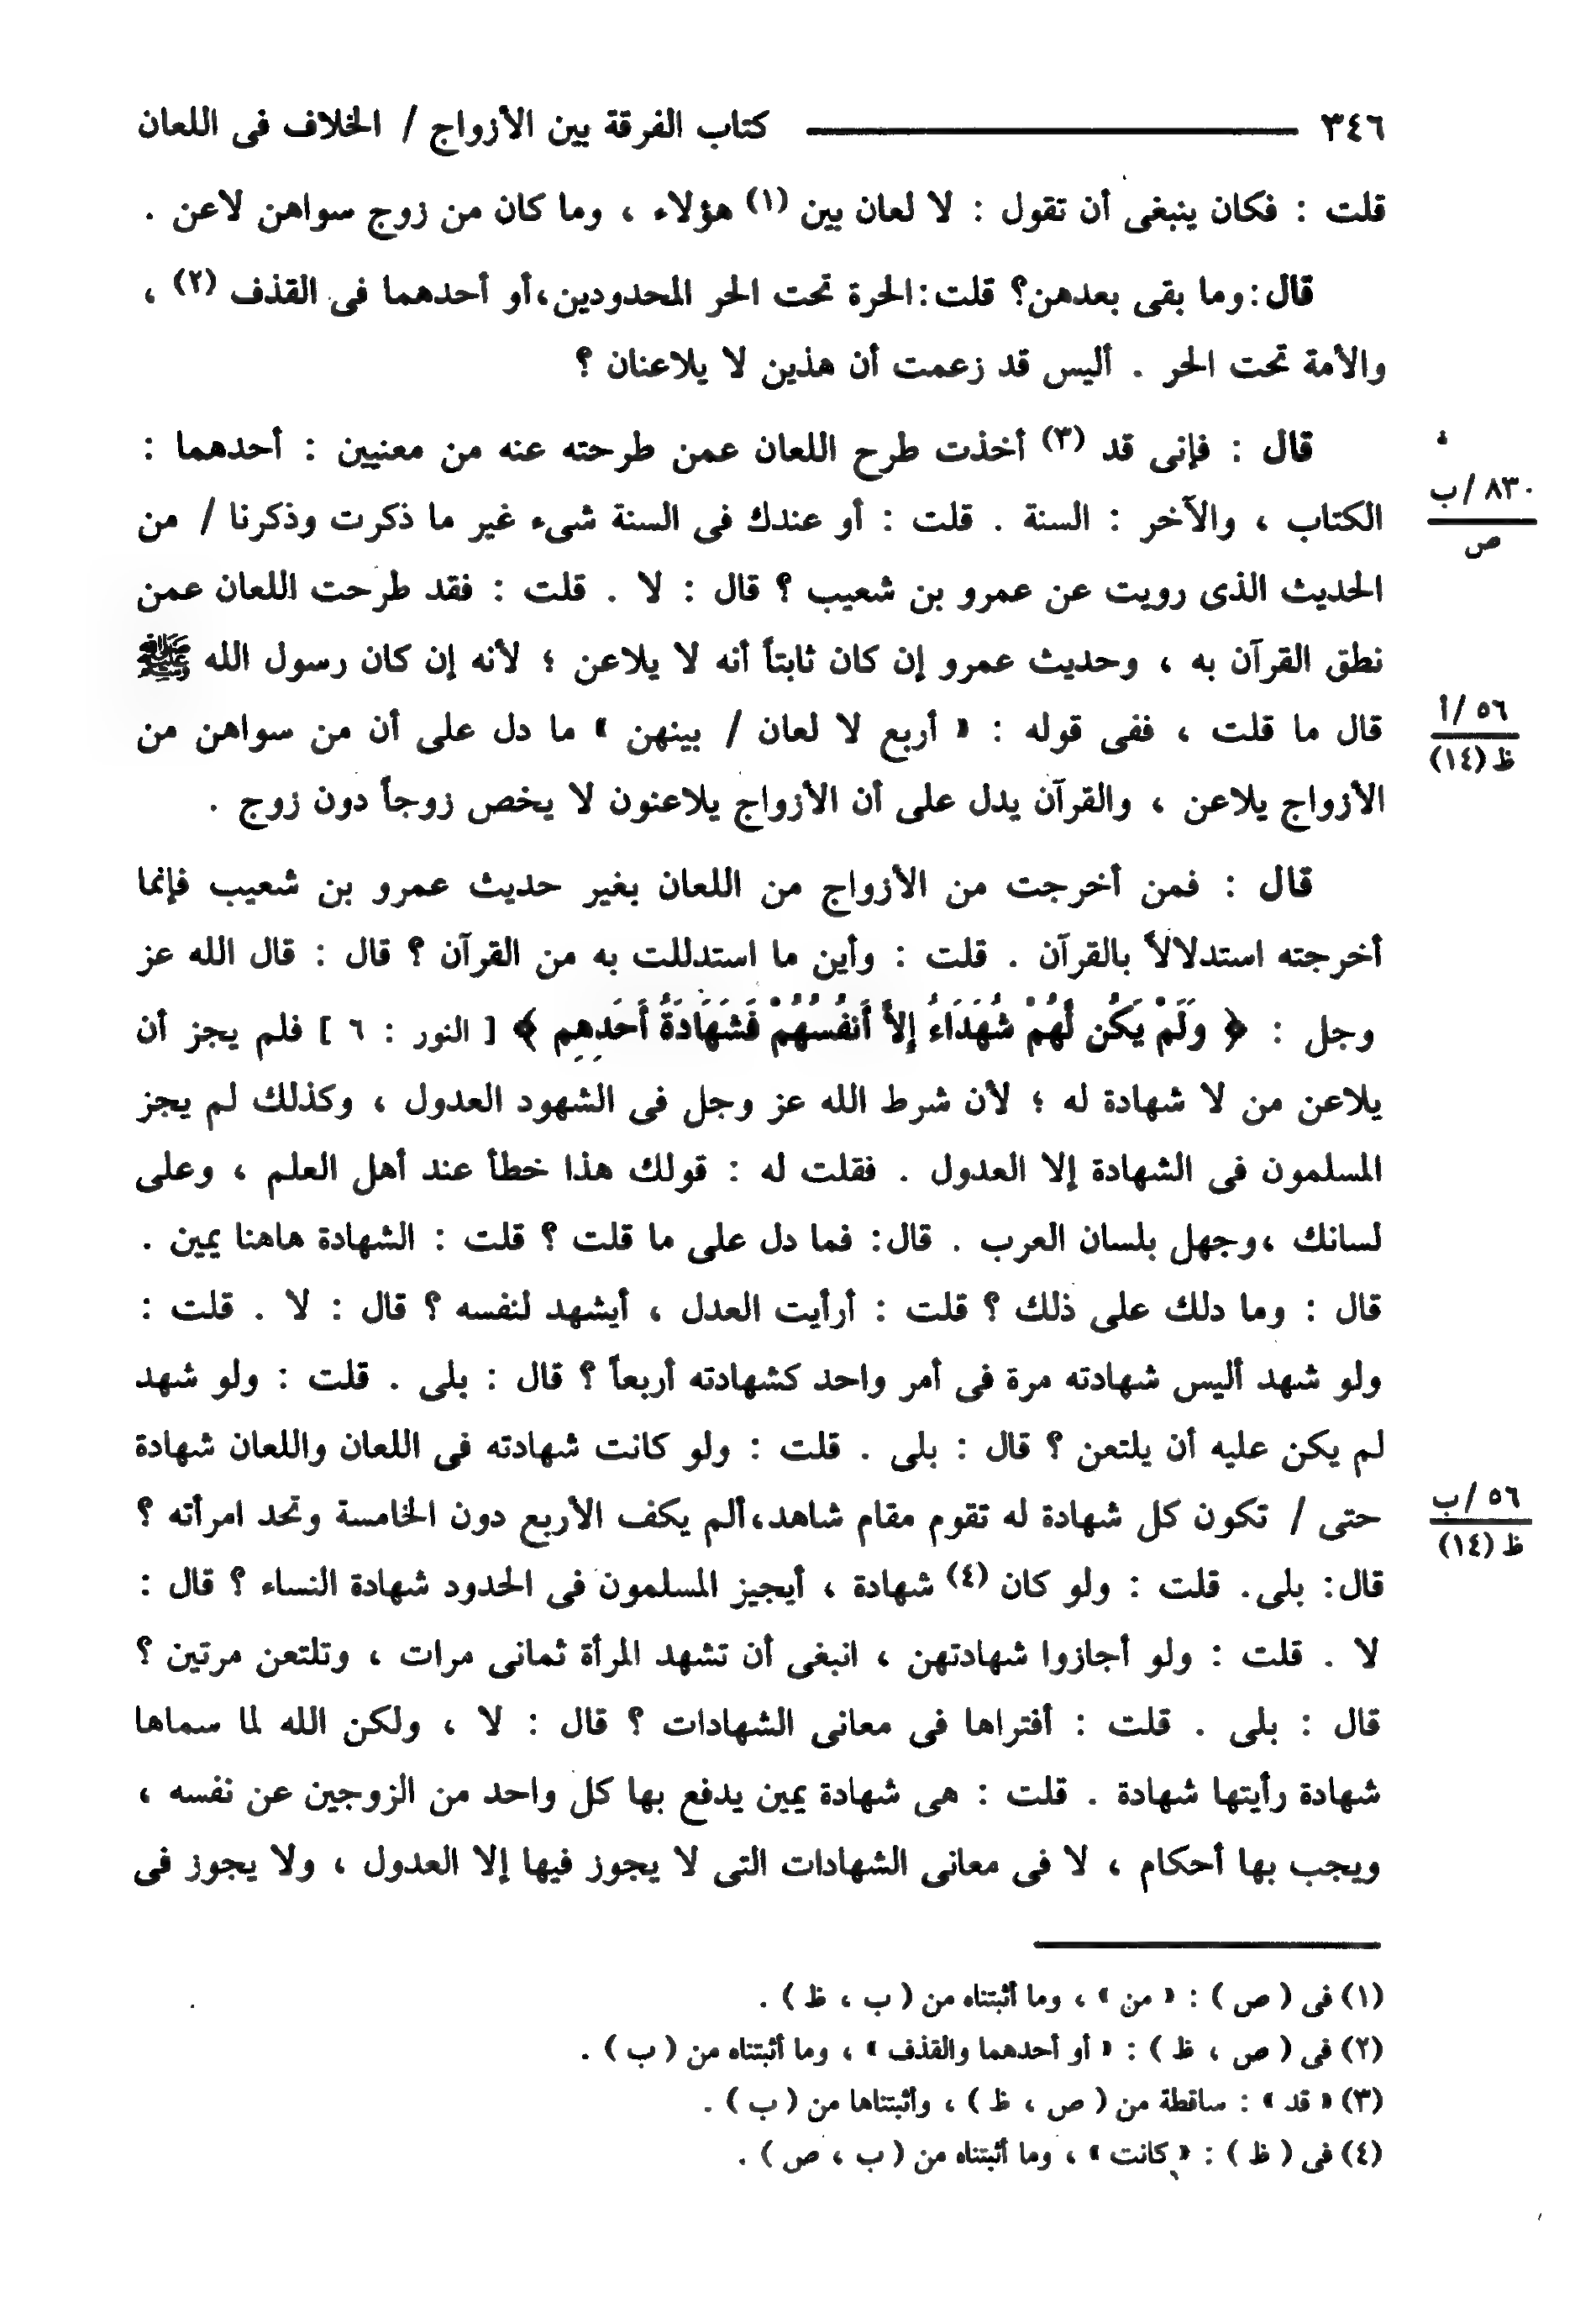 ٣٤٦ كتاب الفرقة بين الأزواج / الخلاف فى اللعان
قلت : فكان ينبغى أن تقول : لا لعان بين (١) هؤلاء ، وما كان من زوج سواهن لاعن .
قال : وما بقى بعدهن؟ قلت : الحرة تحت الحر المحدودين، أو أحدهما فى القذف (٢) ،
والأمة تحت الحر . أليس قد زعمت أن هذين لا يلاعنان ؟
قال : فإنى قد (٣) أخذت طرح اللعان عمن طرحته عنه من معنيين : أحدهما :
٨٣٠ /ب
ص
الكتاب ، والآخر : السنة . قلت : أو عندك فى السنة شىء غير ما ذكرت وذكرنا / من
الحديث الذى رويت عن عمرو بن شعيب ؟ قال : لا . قلت : فقد طرحت اللعان عمن
نطق القرآن به ، وحديث عمرو إن كان ثابتاً أنه لا يلاعن ؛ لأنه إن كان رسول الله ﷺ
٥٦ /أ
ظ (١٤)
قال ما قلت ، ففى قوله : « أربع لا لعان / بينهن » ما دل على أن من سواهن من
الأزواج يلاعن ، والقرآن يدل على أن الأزواج يلاعنون لا يخص زوجاً دون زوج .
قال : فمن أخرجت من الأزواج من اللعان بغير حديث عمرو بن شعيب فإنما
أخرجته استدلالاً بالقرآن . قلت : وأين ما استدللت به من القرآن ؟ قال : قال الله عز
وجل : ﴿ وَلَمْ يَكُن لَّهُمْ شُهَدَاءُ إِلاَّ أَنفُسُهُمْ فَشَهَادَةُ أَحَدِهِم ﴾ [ النور : ٦ ] فلم يجز أن
يلاعن من لا شهادة له ؛ لأن شرط الله عز وجل فى الشهود العدول ، وكذلك لم يجز
المسلمون فى الشهادة إلا العدول . فقلت له : قولك هذا خطأ عند أهل العلم ، وعلى
لسانك ، وجهل بلسان العرب . قال: فما دل على ما قلت ؟ قلت : الشهادة هاهنا يمين .
قال : وما دلك على ذلك ؟ قلت : أرأيت العدل ، أيشهد لنفسه ؟ قال : لا . قلت :
ولو شهد أليس شهادته مرة فى أمر واحد كشهادته أربعاً ؟ قال : بلى . قلت : ولو شهد
لم يكن عليه أن يلتعن ؟ قال : بلى . قلت : ولو كانت شهادته فى اللعان واللعان شهادة
٥٦ /ب
ظ (١٤)
حتى / تكون كل شهادة له تقوم مقام شاهد، ألم يكف الأربع دون الخامسة وتحد امرأته ؟
قال: بلى. قلت : ولو كان (٤) شهادة ، أيجيز المسلمون فى الحدود شهادة النساء ؟ قال :
لا . قلت : ولو أجازوا شهادتهن ، انبغى أن تشهد المرأة ثمانى مرات ، وتلتعن مرتين ؟
قال : بلى . قلت : أفتراها فى معانى الشهادات ؟ قال : لا ، ولكن الله لما سماها
شهادة رأيتها شهادة . قلت : هى شهادة يمين يدفع بها كل واحد من الزوجين عن نفسه ،
ويجب بها أحكام ، لا فى معانى الشهادات التى لا يجوز فيها إلا العدول ، ولا يجوز فى
(١) فى ( ص ) : « من » ، وما أثبتناه من ( ب ، ظ ) .
(٢) فى ( ص ، ظ ) : « أو أحدهما والقذف » ، وما أثبتناه من ( ب ) .
(٣) « قد » : ساقطة من ( ص ، ظ ) ، وأثبتناها من ( ب ) .
(٤) فى ( ظ ) : « كانت » ، وما أثبتناه من ( ب ، ص ) .